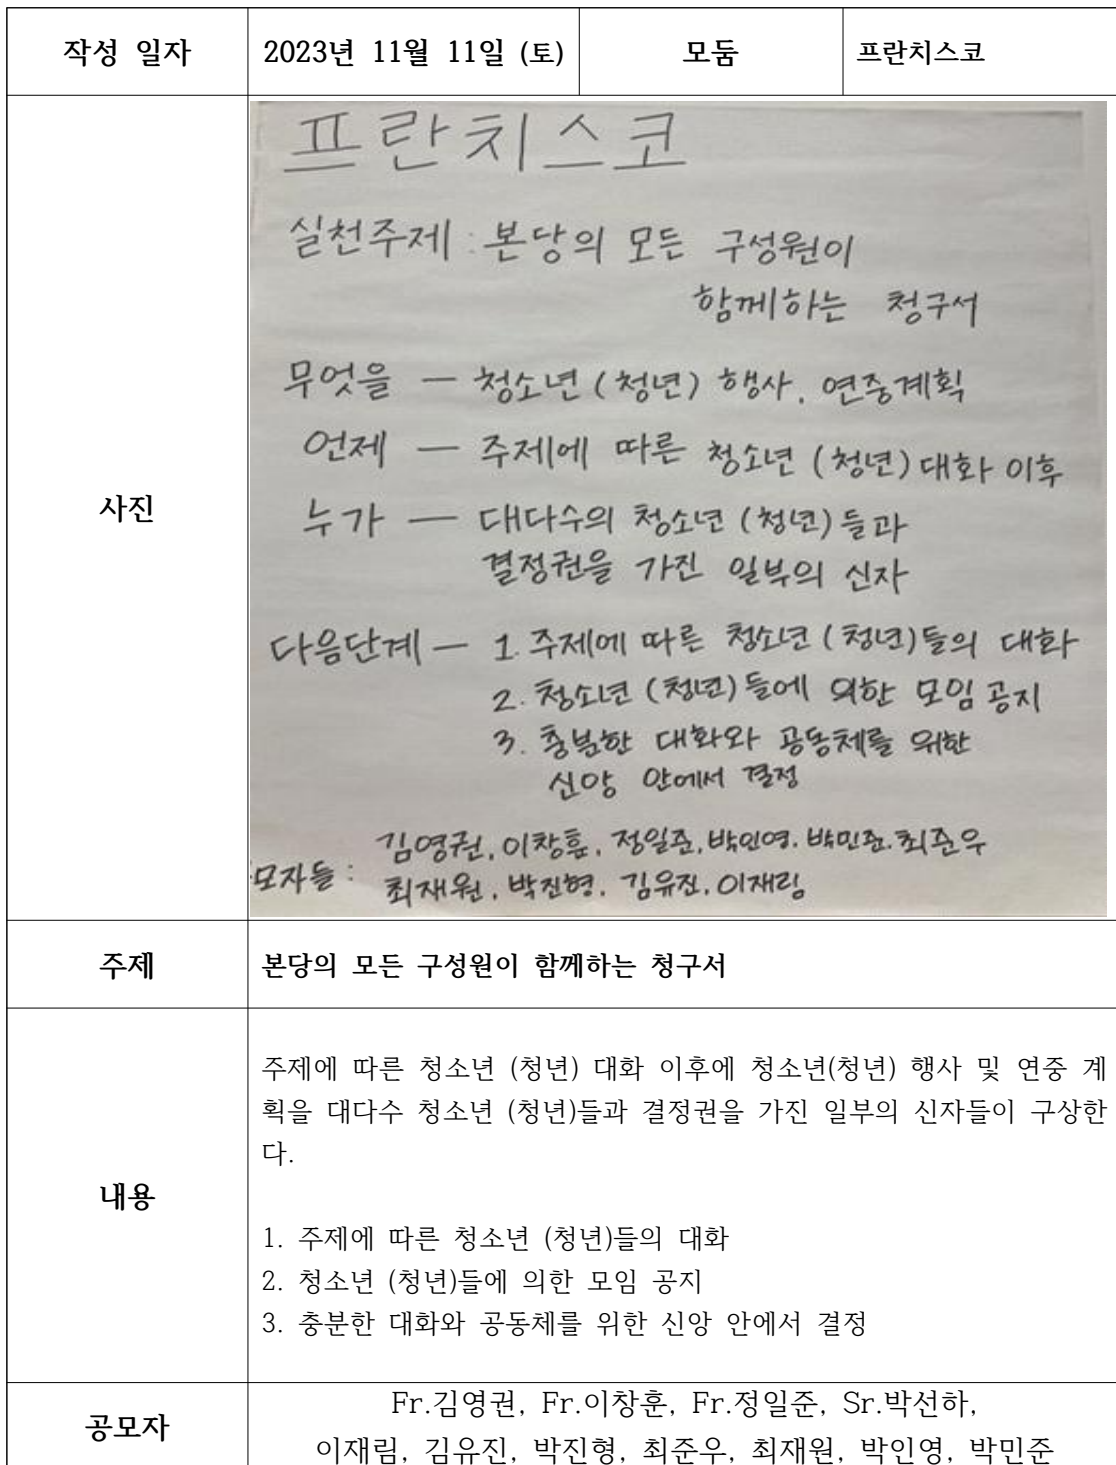 작성 일자 2023년 11월 11일 (토) 모둠 프란치스코
사진
프란치스코
실천주제 : 본당의 모든 구성원이
함께하는 청구서
무엇을 — 청소년 (청년) 행사, 연중계획
언제 — 주제에 따른 청소년 (청년) 대화 이후
누가 — 대다수의 청소년 (청년) 들과
결정권을 가진 일부의 신자
다음단계 — 1. 주제에 따른 청소년 (청년)들의 대화
2. 청소년 (청년) 들에 의한 모임 공지
3. 충분한 대화와 공동체를 위한
신앙 안에서 결정
김영권, 이창훈, 정일준, 박인영, 박민준, 최준우
모자들 : 최재원, 박진형, 김유진, 이재림
주제 본당의 모든 구성원이 함께하는 청구서
내용
주제에 따른 청소년 (청년) 대화 이후에 청소년(청년) 행사 및 연중 계
획을 대다수 청소년 (청년)들과 결정권을 가진 일부의 신자들이 구상한
다.
1. 주제에 따른 청소년 (청년)들의 대화
2. 청소년 (청년)들에 의한 모임 공지
3. 충분한 대화와 공동체를 위한 신앙 안에서 결정
공모자
Fr.김영권, Fr.이창훈, Fr.정일준, Sr.박선하,
이재림, 김유진, 박진형, 최준우, 최재원, 박인영, 박민준